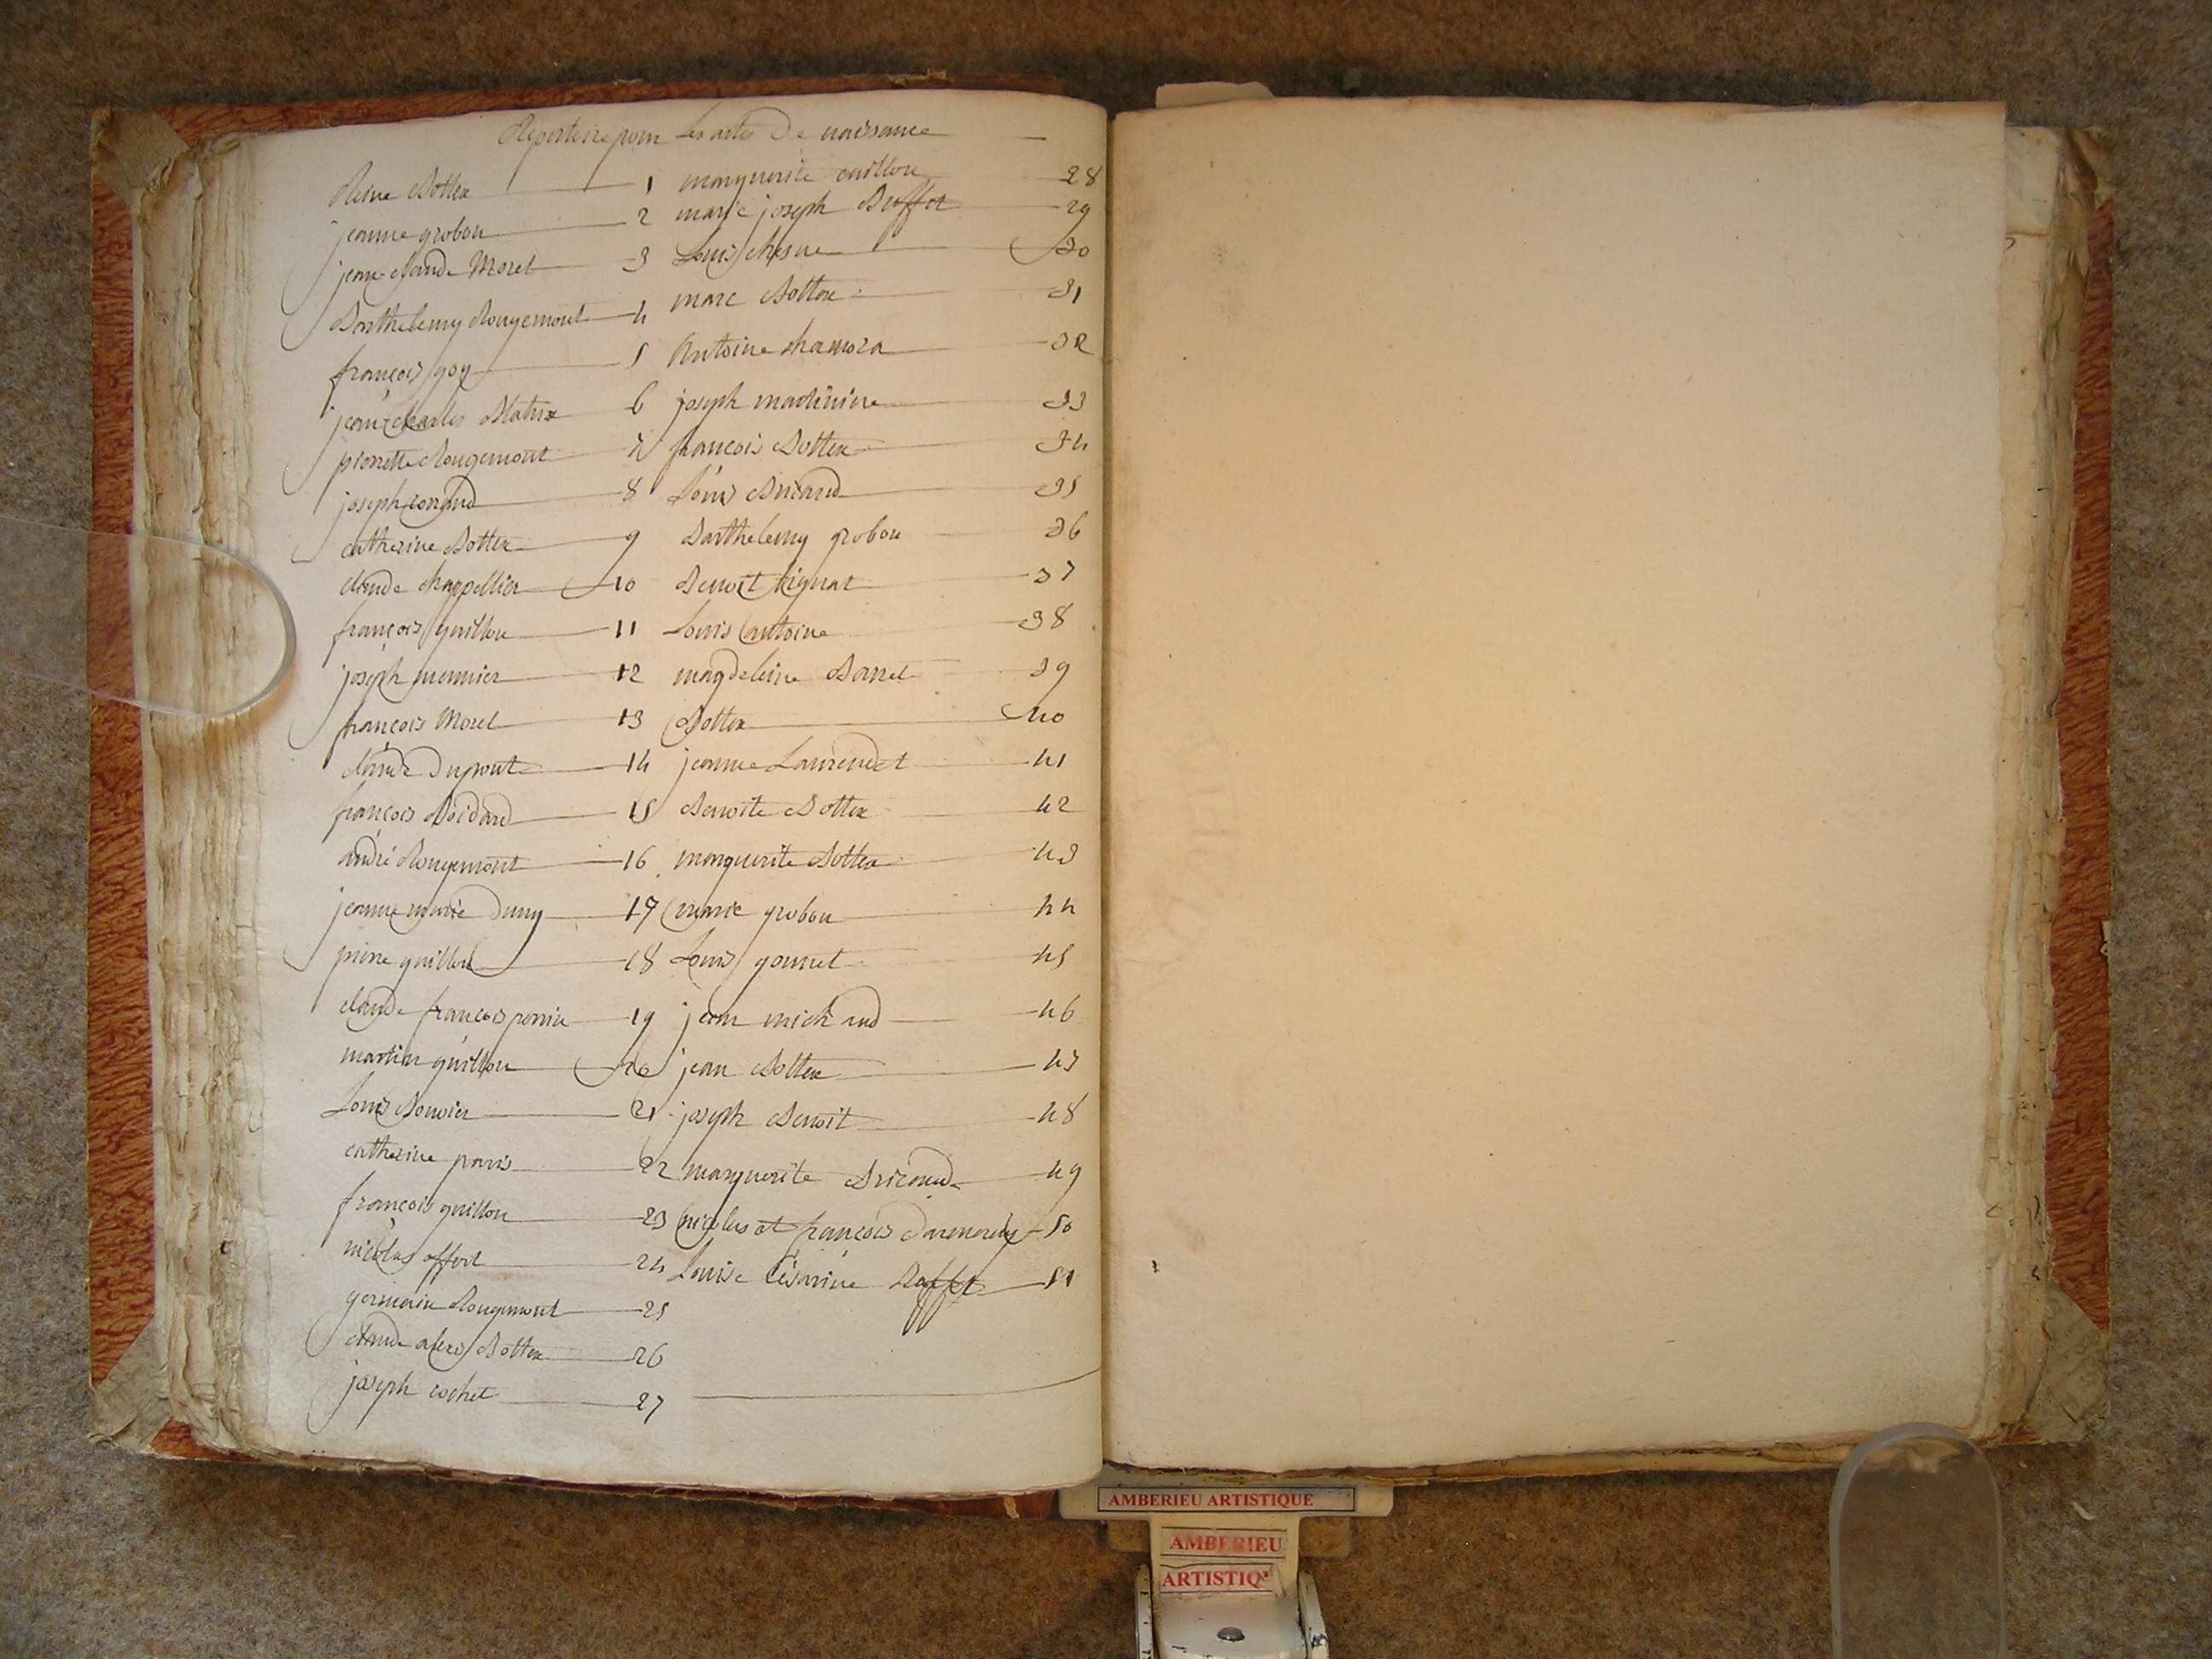 Repertoire pour Les actes De naissance
Reine Bottex 1
jeanne grobon 2
jean-claude Morel 3
Barthelemy Rougemont 4
françois goy 5
jean-charles 6
pierrette Rougemont 7
joseph 8
catherine Bottex 9
claude chappellier 10
françois guillon 11
joseph monnier 12
françois Morel 13
claude Dupont 14
françois 15
andré Rougemont 16
jeanne marie 17
pierre guillon 18
claude françois perrin 19
martin guillon 20
Louis Bouvier 21
catherine paris 22
françois guillon 23
nicolas 24
germain Rougemont 25
claude alexis Bottex 26
joseph cochet 27
marguerite 28
marie joseph Buffet 29
Louis chesne 30
marc Bottex 31
Antoine 32
joseph 33
francois Bottex 34
Louis 35
Barthelemy grobon 36
Benoit tignat 37
Louis antoine 38
magdeleine Barret 39
Bottex 40
jeanne Laurendet 41
Benoite Bottex 42
marguerite Bottex 43
marie grobon 44
Louis gonnet 45
jean michaud 46
jean Bottex 47
joseph Benoit 48
marguerite 49
nicolas et françois 50
Louise Césarine Buffet 51
AMBERIEU ARTISTIQUE
AMBERIEU
ARTISTIQ